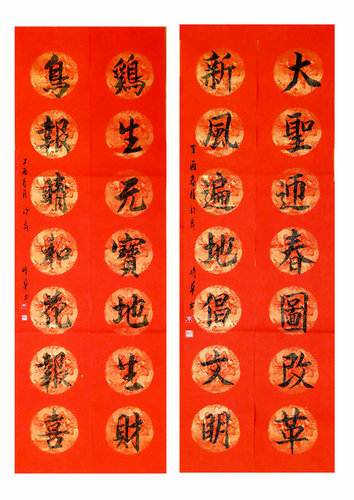 大聖迎春圖改革
新風遍地倡文明
丁酉春月
鷄生元寶地生財
鳥報晴和花報喜
丁酉春月